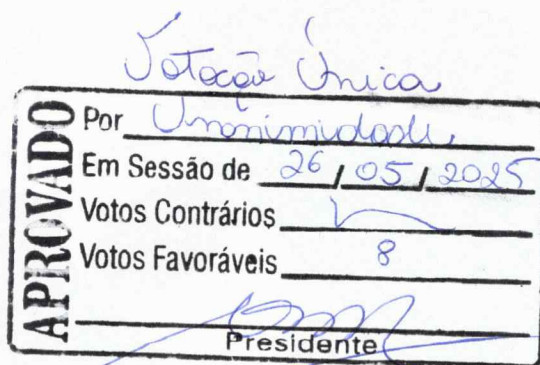 Votação Única
APROVADO
Por Unanimidade
Em Sessão de 26 / 05 / 2025
Votos Contrários
Votos Favoráveis 8
Presidente